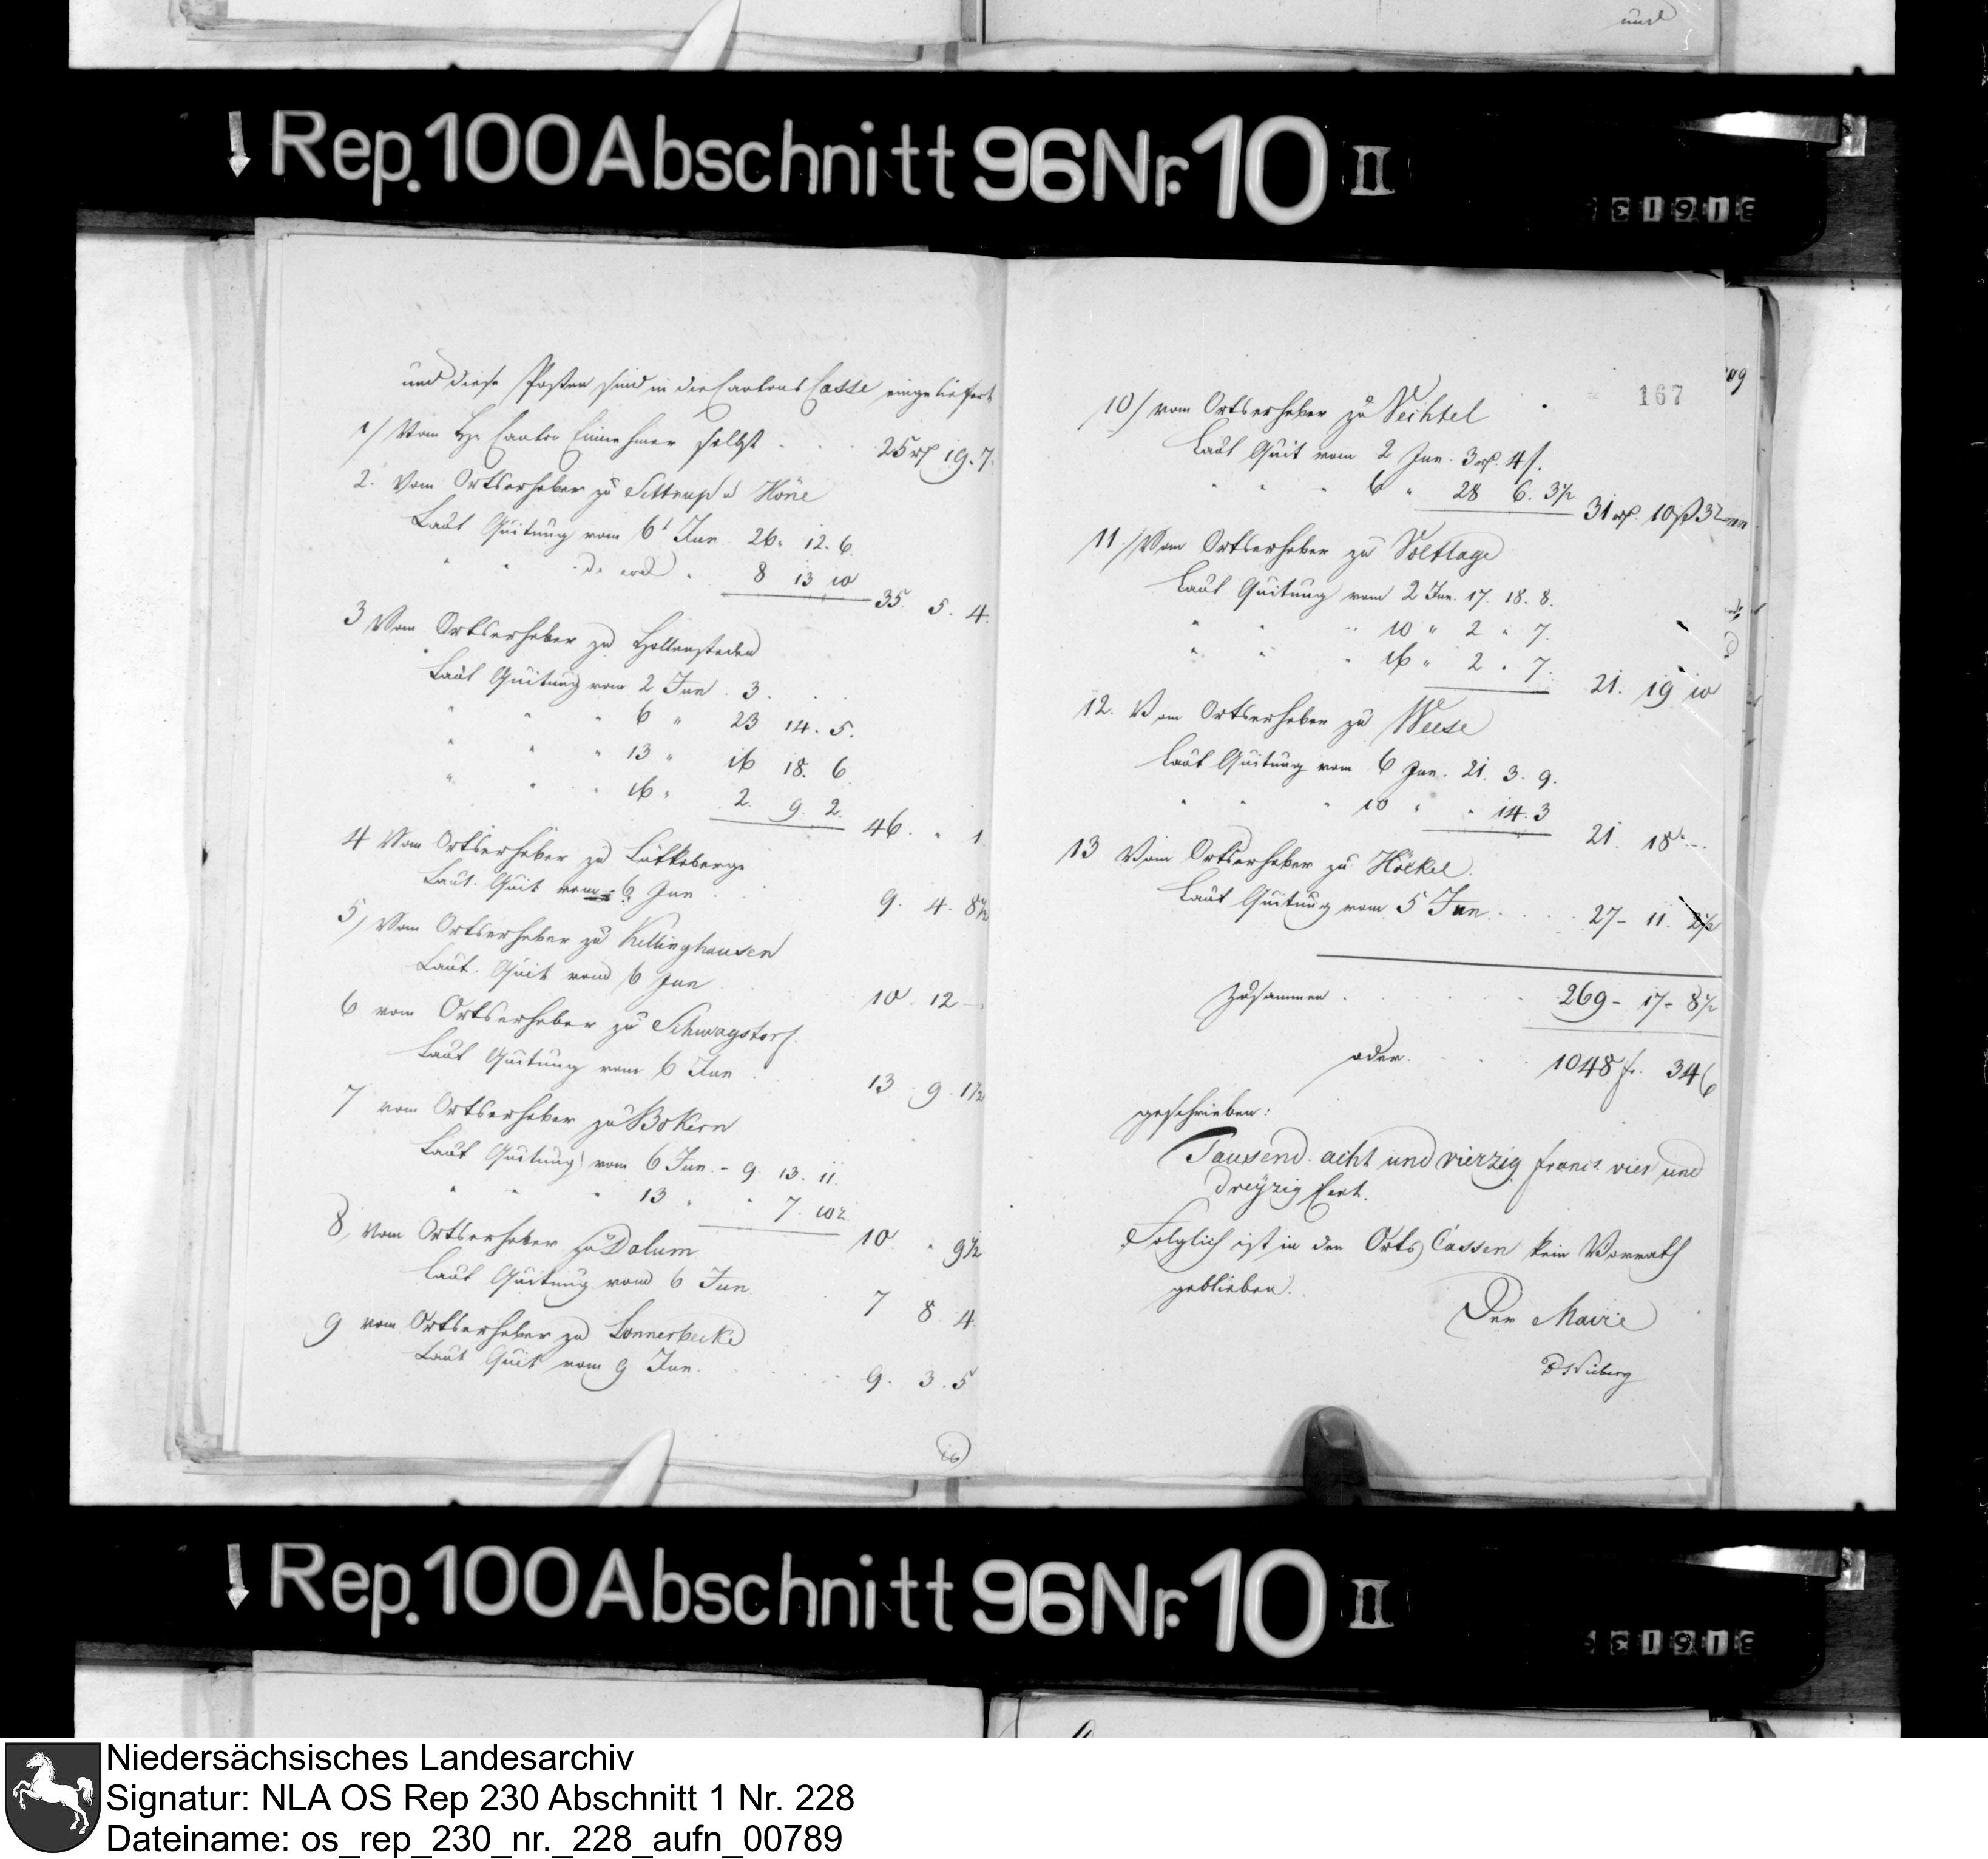 und
Rep. 100 Abschnitt 96 Nr. 10 II
und diese Posten sind in die Cantons Casse eingeliefert
1/ Vom H. Canton Einnehmer selbst . . . 25 rß 19. 7.
2. Vom Ortserheber zu Settrup u Höne
Laut Quitung vom 6t Jun 26. 12. 6.
" " do " 8 13 10
35. 5. 4.
3 Vom Ortserheber zu Hollenstede
Laut Quitung vom 2 Jun. 3. . .
" " " 6 " 23 14. 5.
" " " 13 " 16 18. 6
" " " 16 " 2. 9. 2.
46. " 1.
4 Vom Ortserheber zu Lütkeberge
Laut. Quit vom 6 Jun . . 9. 4. 8½
5, Vom Ortserheber zu Kellinghausen
Laut. Quit vom 6 Jun . . 10. 12 —
6 vom Ortserheber zu Schwagstorf.
Laut Quitung vom 6 Jun . 13 9. 1½
7 vom Ortserheber zu Bokern
Laut Quitung vom 6 Jun. - 9. 13. 11.
" " " 13 " " 7. 10½
10. " 9½
8, vom Ortserheber zu Dalum
Laut Quitung vom 6 Jun. . . 7 8. 4.
9 vom Ortserheber zu Lonnerbecke
Laut Quit vom 9 Jun. . . . 9. 3. 5
10)
167
10/ vom Ortserheber zu Vechtel
Laut Quit vom 2 Jun. 3 rß. 4 ß.
" " " 6 " 28 6. 3½
31 rß. 10 ß 3½
11./ Vom Ortserheber zu Voltlage
Laut Quitung vom 2 Jun. 17. 18. 8.
" " " 10 " 2 " 7.
" " " 16 " 2 " 7.
21. 19 10
12. Vom Ortserheber zu Weese
Laut Quitung vom 6 Jun. 21. 3. 9.
" " " 10 " " 14. 3
21. 18 —.
13 Vom Ortserheber zu Höckel.
Laut Quitung vom 5 Jun. . . . 27 - 11. 2½
Zusammen . . . 269 - 17 - 8½
oder. . . . 1048 fr. 34 C
geschrieben:
Tausend. acht und vierzig francs. vier und
dreyzig Cent.
Folglich ist in den Orts Cassen kein Vorrath
geblieben.
Der Maire
Rep. 100 Abschnitt 96 Nr. 10 II
Niedersächsisches Landesarchiv
Signatur: NLA OS Rep 230 Abschnitt 1 Nr. 228
Dateiname: os_rep_230_nr._228_aufn_00789